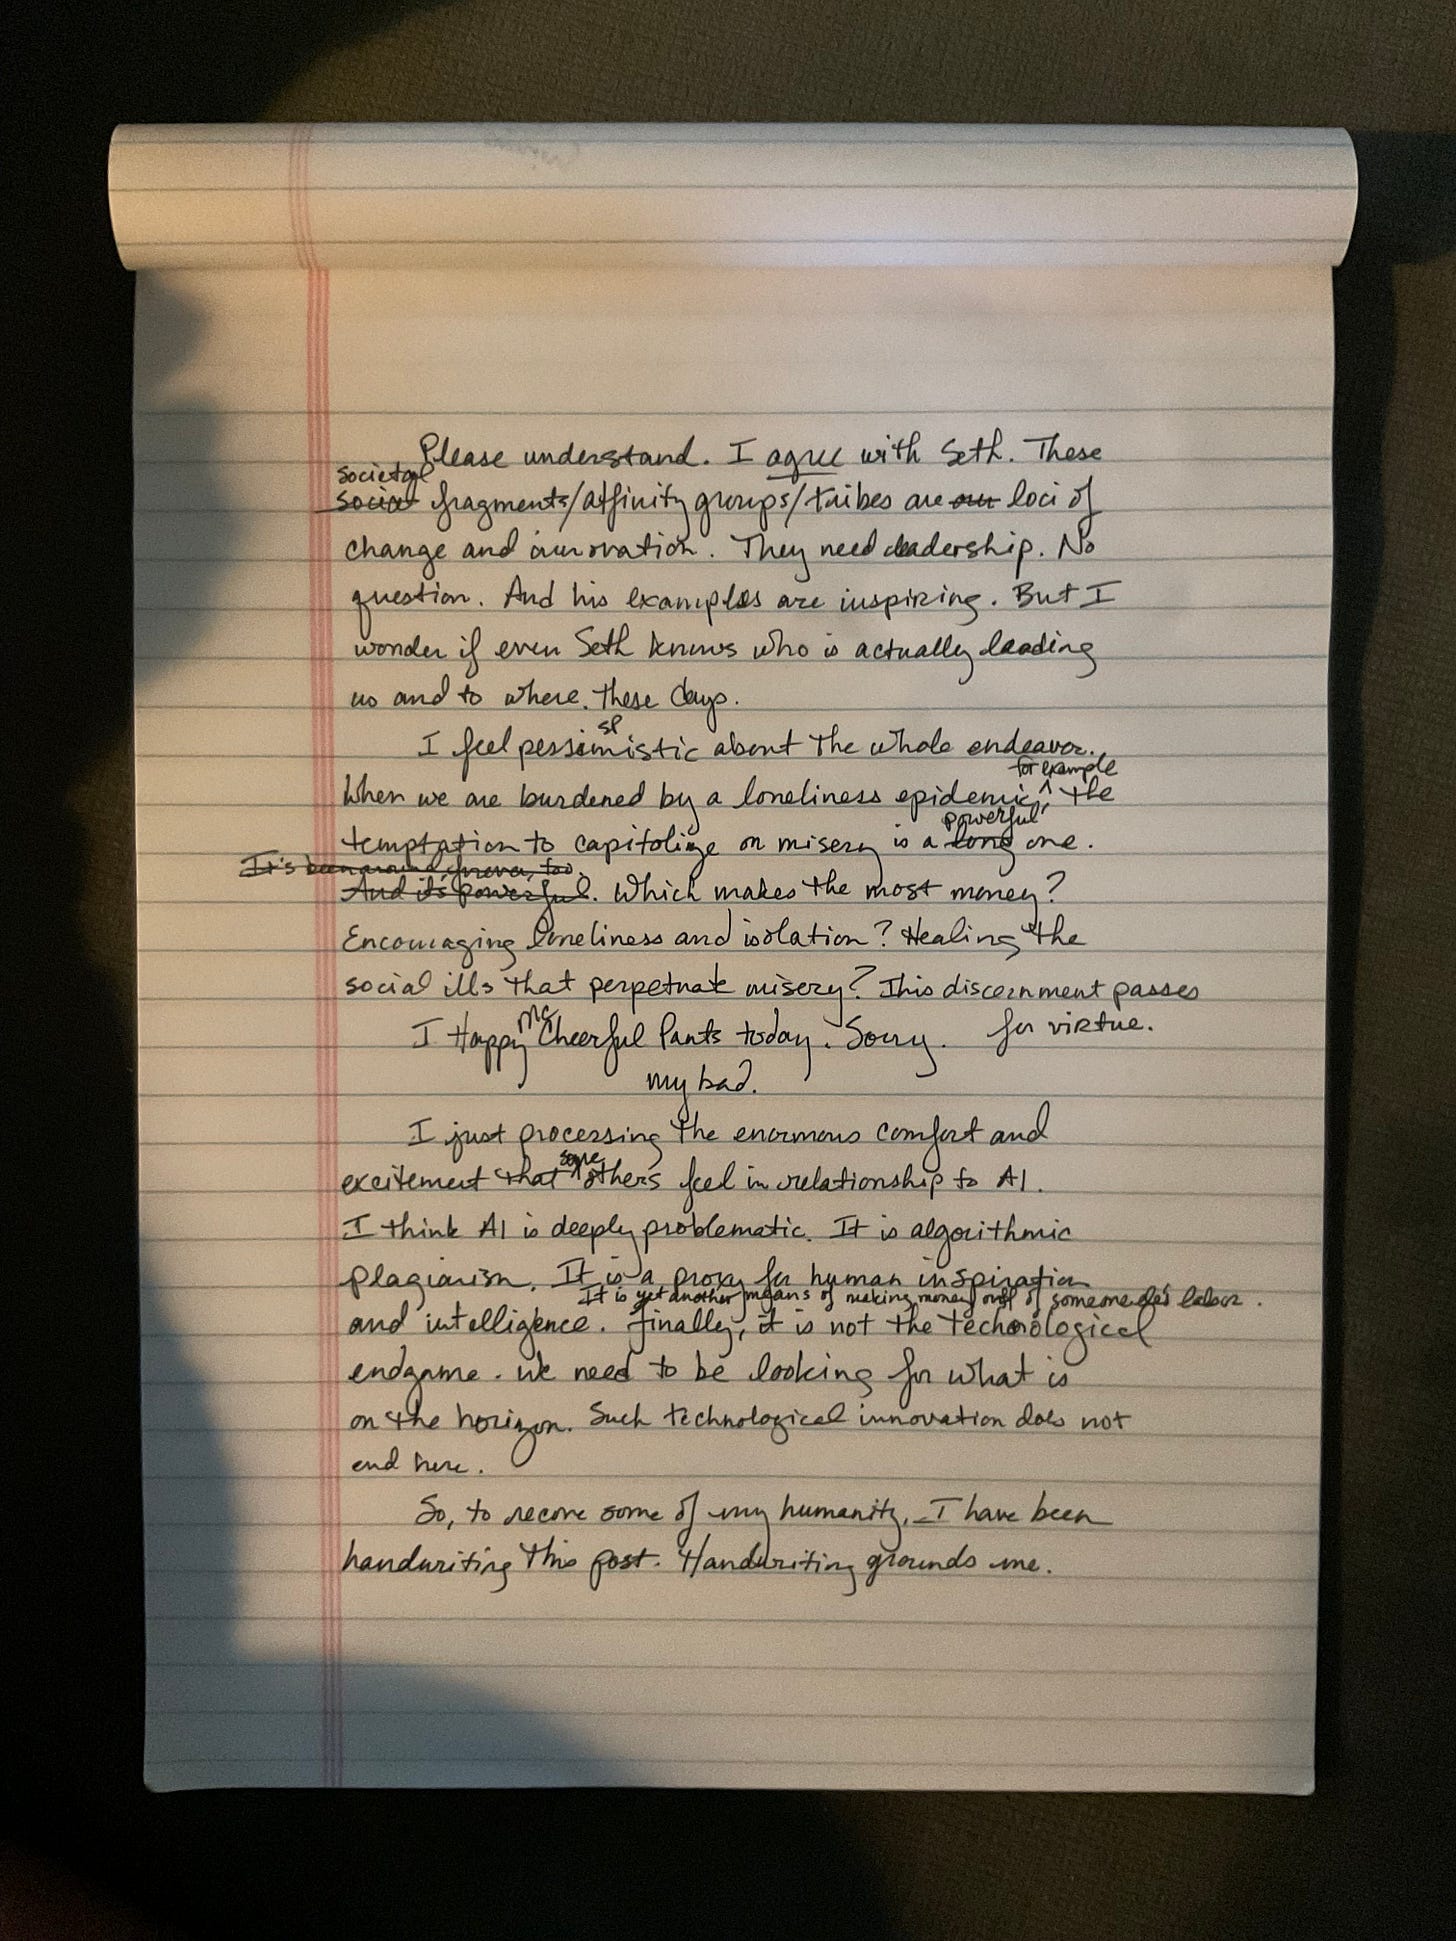 Please understand. I agree with Seth. These
societal
social fragments/affinity groups/tribes are our loci of
change and innovation. They need leadership. No
question. And his examples are inspiring. But I
wonder if even Seth knows who is actually leading
us and to where these days.
sp
I feel pessimistic about the whole endeavor.
for example
When we are burdened by a loneliness epidemic, ^ the
powerful
temptation to capitolize on misery is a long one.
It's been around forever, too.
And it's powerful. Which makes the most money?
Encouraging loneliness and isolation? Healing the
social ills that perpetuate misery? This discernment passes
for virtue.
I Happy Mc Cheerful Pants today. Sorry.
my bad.
I just processing the enormous comfort and
some
excitement that ^ others feel in relationship to AI.
I think AI is deeply problematic. It is algorithmic
plagiarism. It is a proxy for human inspiration
It is yet another means of making money off of someone labor.
and intelligence. Finally, it is not the technological
endgame. We need to be looking for what is
on the horizon. Such technological innovation does not
end here.
So, to some of my humanity, I have been
handwriting this post. Handwriting grounds me.